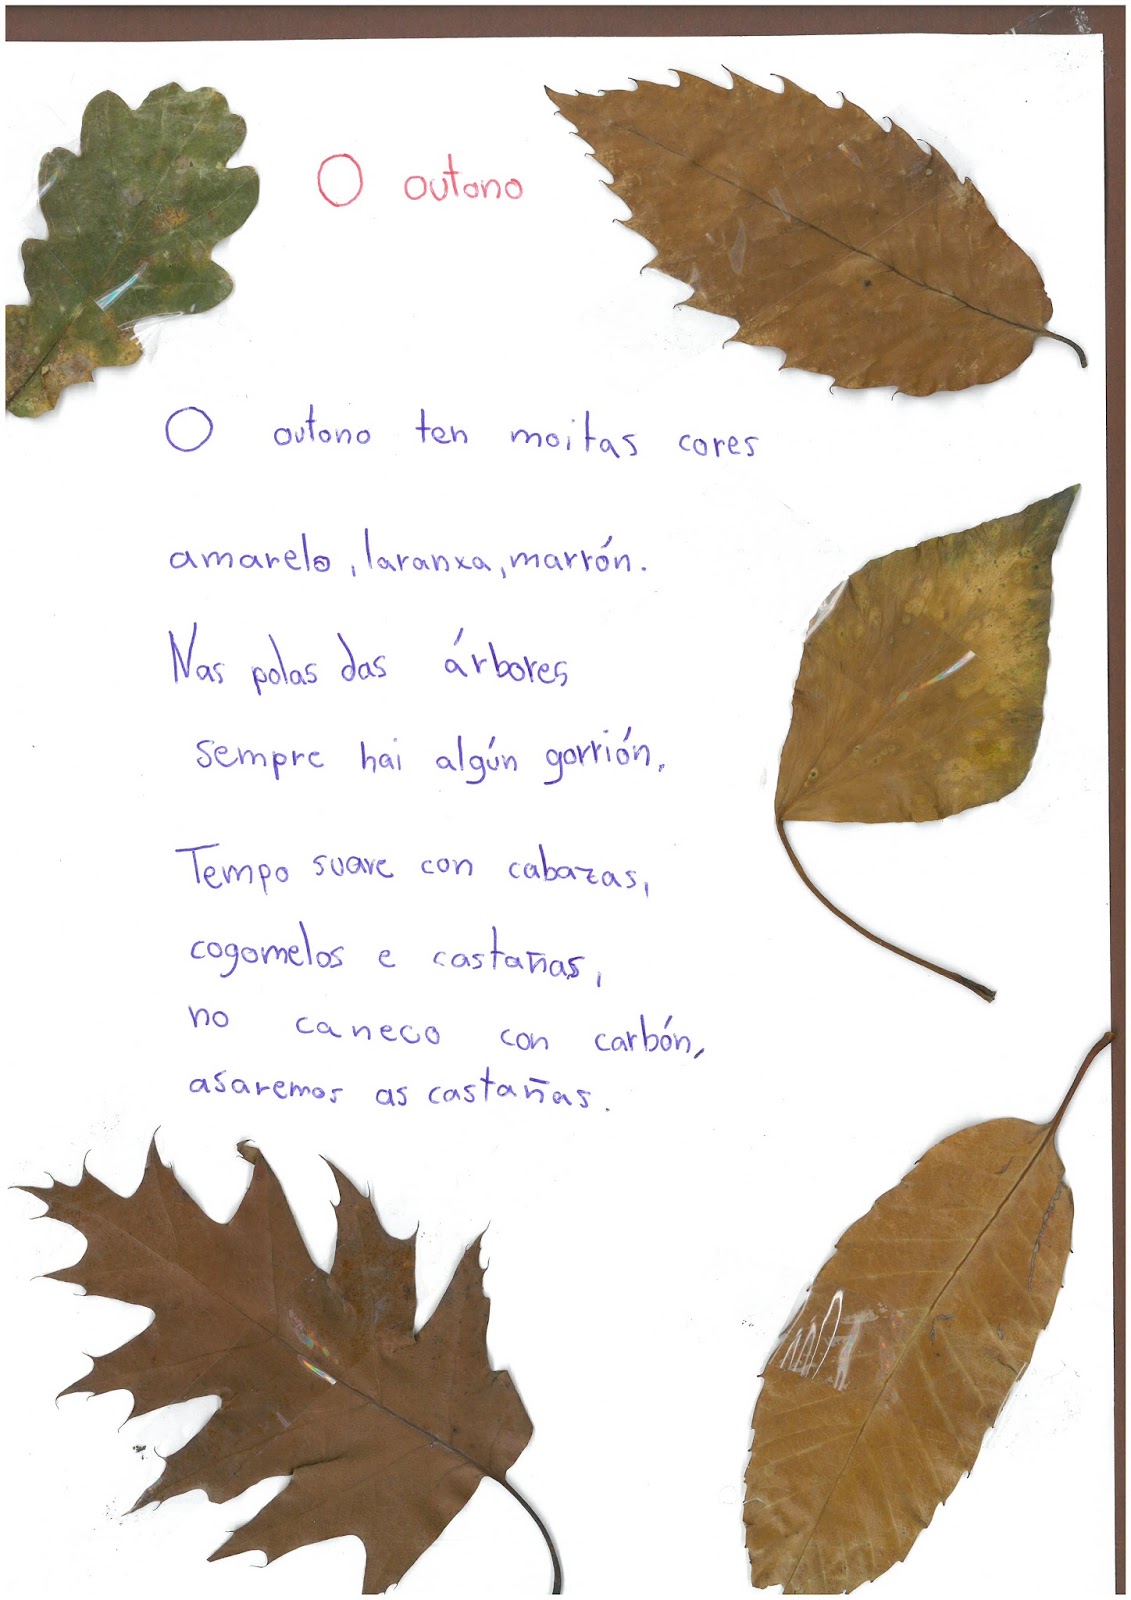 O outono
O outono ten moitas cores
amarelo, laranxa, marrón.
Nas polas das árbores
sempre hai algún gorrión.
Tempo suave con cabazas,
cogomelos e castañas,
no caneco con carbón,
asaremos as castañas.